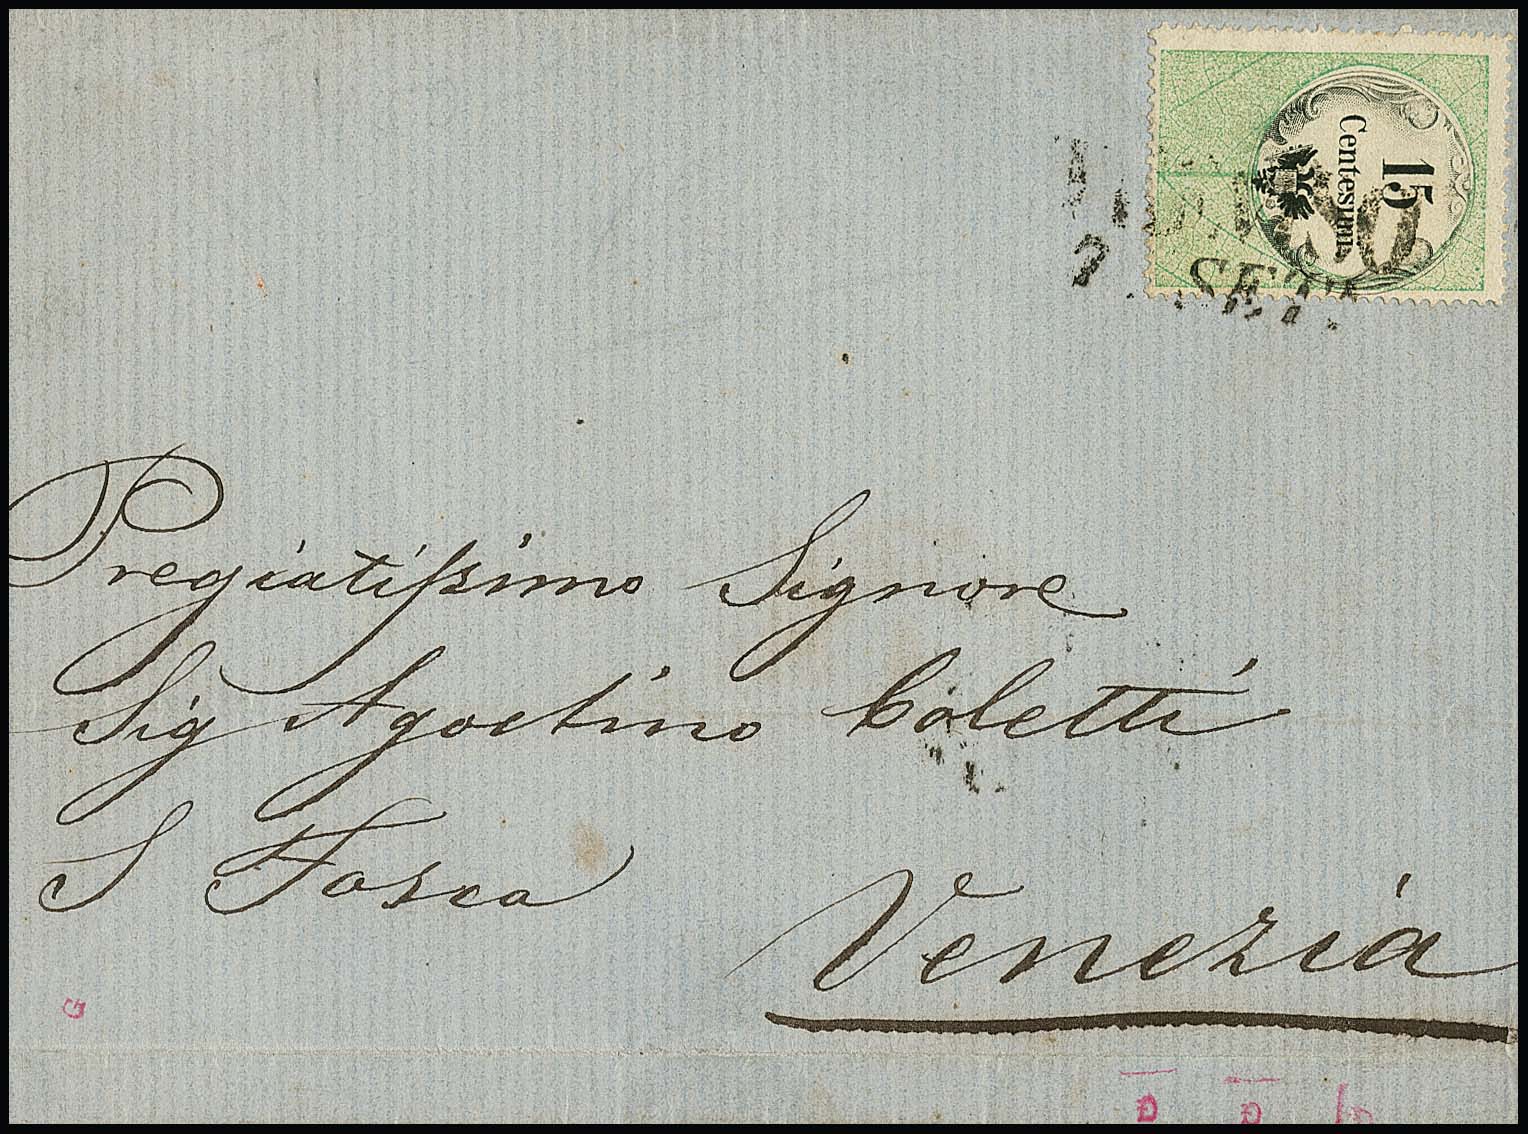 15
Centesimi
7 SET.
Pregiatissimo Signore
Sig Agostino Coletti
S Fosca
Venezia